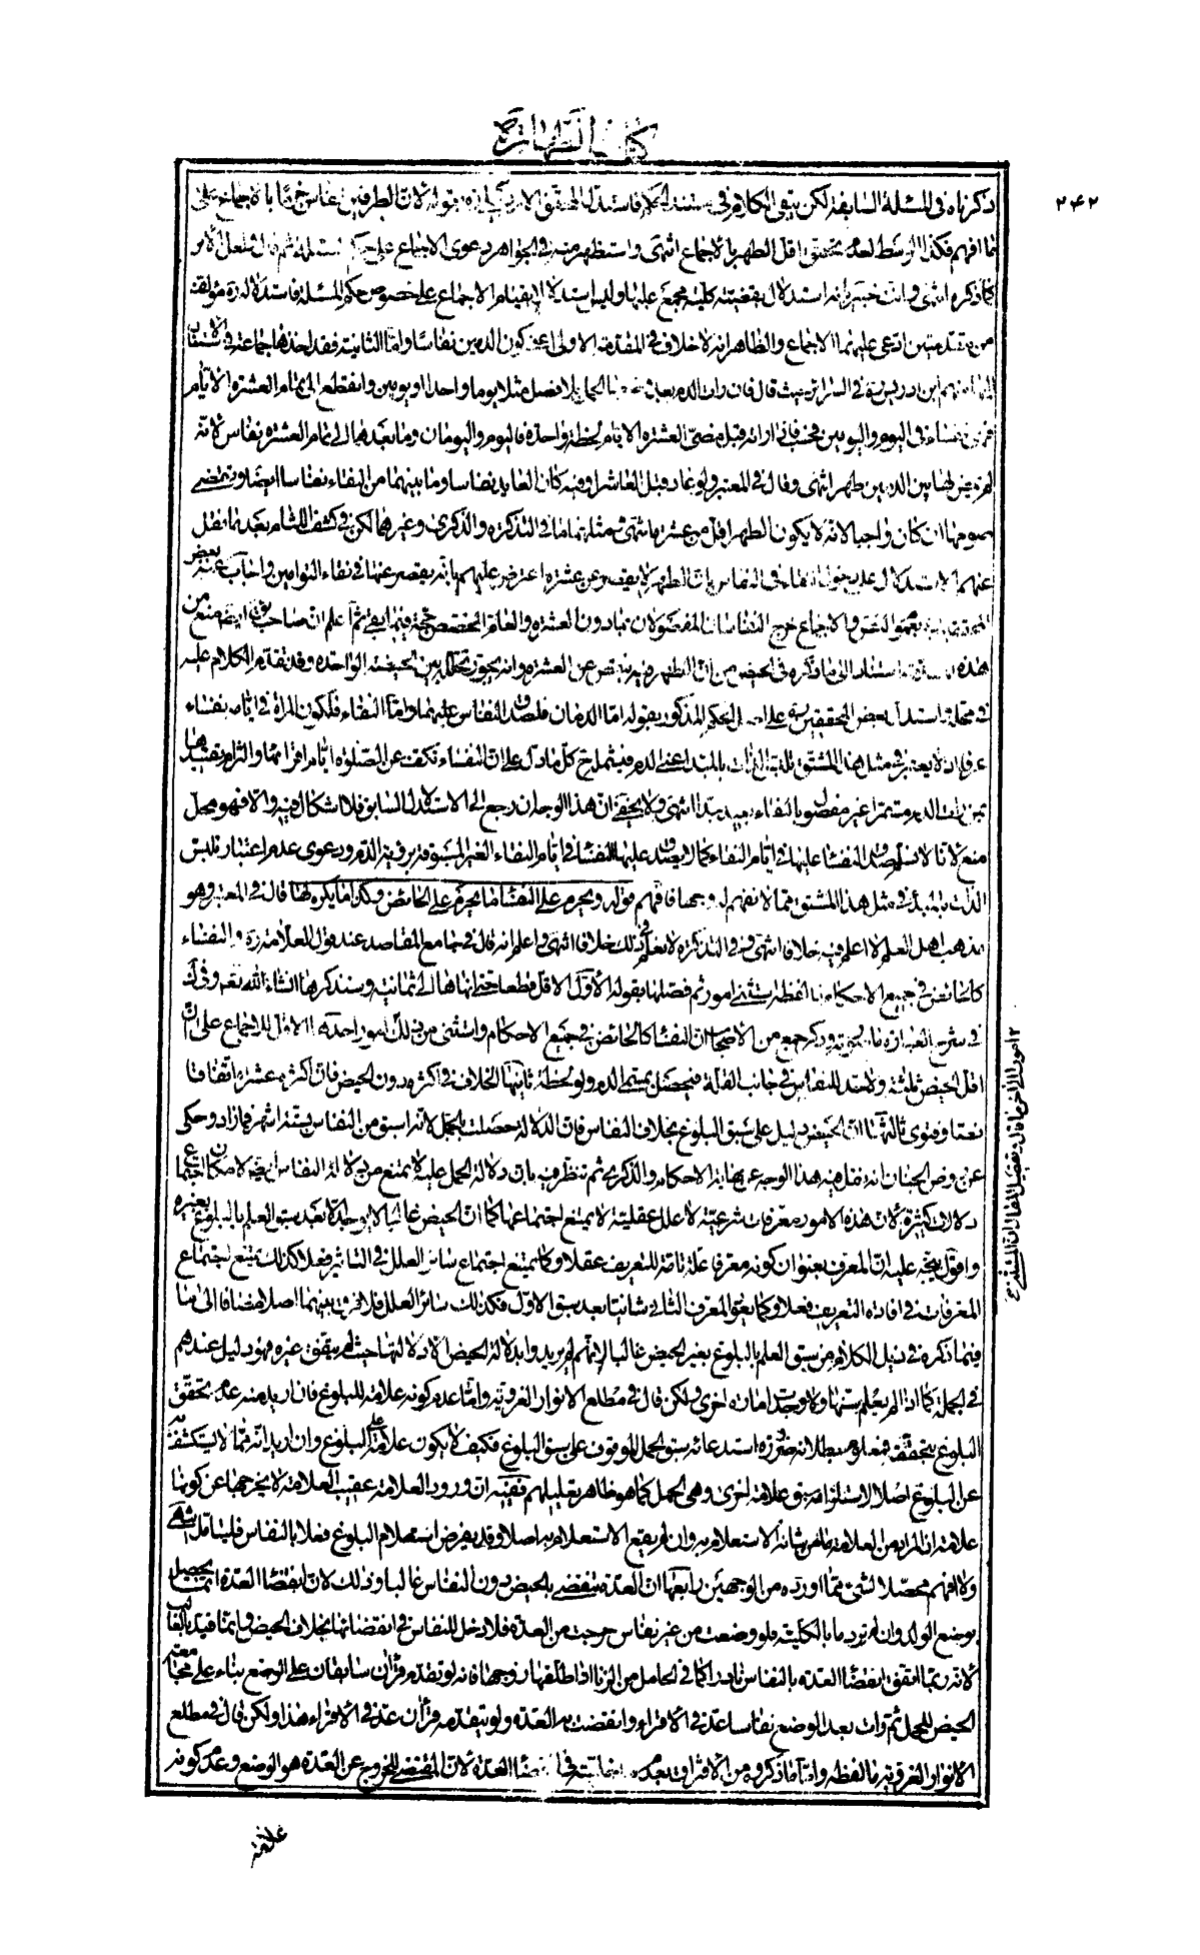 كتاب الطهارة
٢٤٢
ذكرناه في المسئلة السابقة لكن يبقى الكلام في مستند الحكم فاستدل المحقق الأردبيلي ره بقوله لان الطرفين نفاس بالاجماع على
ما افهم فكذا الوسط لعدم تحقق اقل الطهر بالاجماع انتهى واستظهر منه في الجواهر دعوى الاجماع على حكم المسئلة ثم قال ولعل الأمر
كما ذكره انتهى وانت خبير بانه استدلال بقضيته كلية مجمع عليها وليس استدلالا بقيام الاجماع على خصوص حكم المسئلة فاستدلاله ره مؤلف
من مقدمتين ادعى عليهما الاجماع والظاهر انه لا خلاف في المقدمة الاولى اعني كون الدمين نفاسا واما الثانية فقد اخذها جماعة في الاستدلال
منهم ابن ادريس ره في السرائر حيث قال فان رات الدم بعد الحمل بلا فصل مثلا يوما واحدا او يومين وانقطع الى تمام العشرة الايام
نفساء في اليوم واليومين فحسب فان راته قبل مضي العشرة الايام لحظة واحدة فاليوم واليومان وما بعدهما الى تمام العشرة نفاس لانه
لم يمض لها بين الدمين طهر انتهى وقال في المعتبر ولو عاد قبل العاشر او فيه كان العايد نفاسا وما بينهما من النقاء نفاسا ايضا وتقضي
صومها ان كان واجبا لانه لا يكون الطهر اقل من عشرة انتهى ومثله ما في التذكرة والذكرى وغيرهما لكن في كشف اللثام بعد ما نقل
عنهم الاستدلال على دخول النقاء في النفاس بان الطهر لا يقصر عن عشرة اعترض عليهم بانه يقصر عنها في نقاء التوامين واجاب عنه بعض
المحققين بعموم النص والاجماع خرج النفاسان المفصولان بما دون العشرة والعام المخصص حجة فيما بقي ثم اعلم ان صاحب ئق ايضا منع من
هذه استنادا الى ما ذكره في الحيض من ان الطهر فيه ينقص عن العشرة وانه يجوز تخلله بين الحيضة الواحدة وقد تقدم الكلام عليه
في محله واستدل بعض المحققين ره على اصل الحكم المذكور بقوله اما الدمان فلصدق النفاس عليهما واما النقاء فلكون المراة في ايامه نفساء
عرفا اذ لا يعتبر في مثل هذا المشتق تلبس الذات بالمبدا اعني الدم فيشملها كل ما دل على ان النفساء تكف عن الصلوة ايام اقرائها والتزام تقييدها
بمن رات الدم مستمرا غير مفصول بالنقاء بعيد جدا انتهى ولا يخفى ان هذا الوجه ان رجع الى الاستدلال السابق فلا اشكال فيه والا فهو محل
منع لانا لا نسلم صدق النفساء عليها في ايام النقاء كما لا يصدق عليها النفساء في ايام النقاء الغير المسبوقة برؤية الدم ودعوى عدم اعتبار تلبس
الذات بالمبدا في مثل هذا المشتق مما لا نفهم له وجها فافهم قوله ويحرم على النفساء ما يحرم على الحائض وكذا ما يكره لها قال في المعتبر وهو
مذهب اهل العلم لا اعلم فيه خلافا انتهى وفي التذكرة لا نعلم في ذلك خلافا انتهى واعلم انه قال في جامع المقاصد عند قول العلامة ره والنفساء
كالحائض في جميع الاحكام ما لفظه يستثنى امور ثم فصلها بقوله الأول الاقل قطعا حتى انهاها الى ثمانية وسنذكرها انشاء الله تعم وفي لك
في شرح العبارة ما صورته وذكر جمع من الاصحاب ان النفساء كالحائض في جميع الاحكام واستثنى من ذلك امور احدها الاقل للاجماع على ان
اقل الحيض ثلثة ولا حد للنفاس في جانب القلة فيحصل بمسمى الدم ولو لحظة ثانيها الخلاف في اكثره دون الحيض فان اكثره عشرة اتفاقا
نصا وفتوى ثالثها ان الحيض دليل على سبق البلوغ بخلاف النفاس فان الدلالة حصلت بالحمل لانه اسبق من النفاس بستة اشهر فما زاد وحكى
عن روض الجنان انه نقل فيه هذا الوجه عن نهاية الاحكام والذكرى ثم تنظر فيه بان دلالة الحمل عليه لا تمنع من دلالة النفاس ايضا لامكان اجتماع
دلالات كثيرة لان هذه الامور معرفات شرعية لا علل عقلية لا يمتنع اجتماعها كما ان الحيض غالبا لا يوجد الا بعد سبق العلم بالبلوغ بغيره
واقول يتجه عليه ان المعرف بعنوان كونه معرفا علة تامة للتعريف عقلا وكما يمتنع اجتماع سائر العلل في التاثير فعلا كذلك يمتنع اجتماع
المعرفات في افادة التعريف فعلا وكما يلغو المعرف الثاني شانيتا بعد سبق الاول فكذلك سائر العلل فلا فرق بينهما اصلا مضافا الى ما
فيما ذكره في ذيل الكلام من سبق العلم بالبلوغ بغير الحيض غالبا لانهم لم يريدوا بدلالة الحيض الا دلالتها حيث لم يتفق غيره فهو دليل عندهم
في الجملة كما اذا لم يعلم سنها ولا وجدت امارة اخرى ولكن قال في مطلع الانوار الغروية واما عدم كونه علامة للبلوغ فان اريد منه عدم تحقق
البلوغ بتحققه فمعلوم بطلانه ضرورة استدعائه سبق الحمل الموقوف على سبق البلوغ فكيف لا يكون علامة على البلوغ وان اريد انه مما لا يستكشف به
عن البلوغ اصلا لاستلزامه سبق علامة اخرى وهي الحمل كما هو ظاهر تعليلهم ففيه ان ورود العلامة عقيب العلامة لا يخرجها عن كونها
علامة اذ المراد من العلامة ما من شانه الاستعلام به وان لم يقع الاستعلام به اصلا وقد يفرض استعلام البلوغ فعلا بالنفاس فليتامل انتهى
ولا افهم محصلا لشئ مما اورده من الوجهين رابعها ان العدة تنقضي بالحيض دون النفاس غالبا وذلك لان انقضاء العدة انما يحصل
بوضع الولد وان لم تر دما بالكلية فلو وضعت من غير نفاس خرجت من العدة فلا دخل للنفاس في انقضائها بخلاف الحيض وانما قيد بالغالب
لانه ربما اتفق انقضاء العدة بالنفاس نادرا كما في الحامل من الزنا اذا طلقها زوجها فانه لو تقدم قرآن سابقان على الوضع بناء على مجامعة
الحيض للحمل ثم رات بعد الوضع نفاسا عد في الاقراء وانقضت به العدة ولو لم يتقدمه قرآن عد في الاقراء هذا ولكن قال في مطلع
الانوار الغروية ما لفظه واما ما ذكروه من الافتراق بعدم في انقضاء العدة لان المقتضي للخروج عن العدة هو الوضع وعدم كونه
علامة